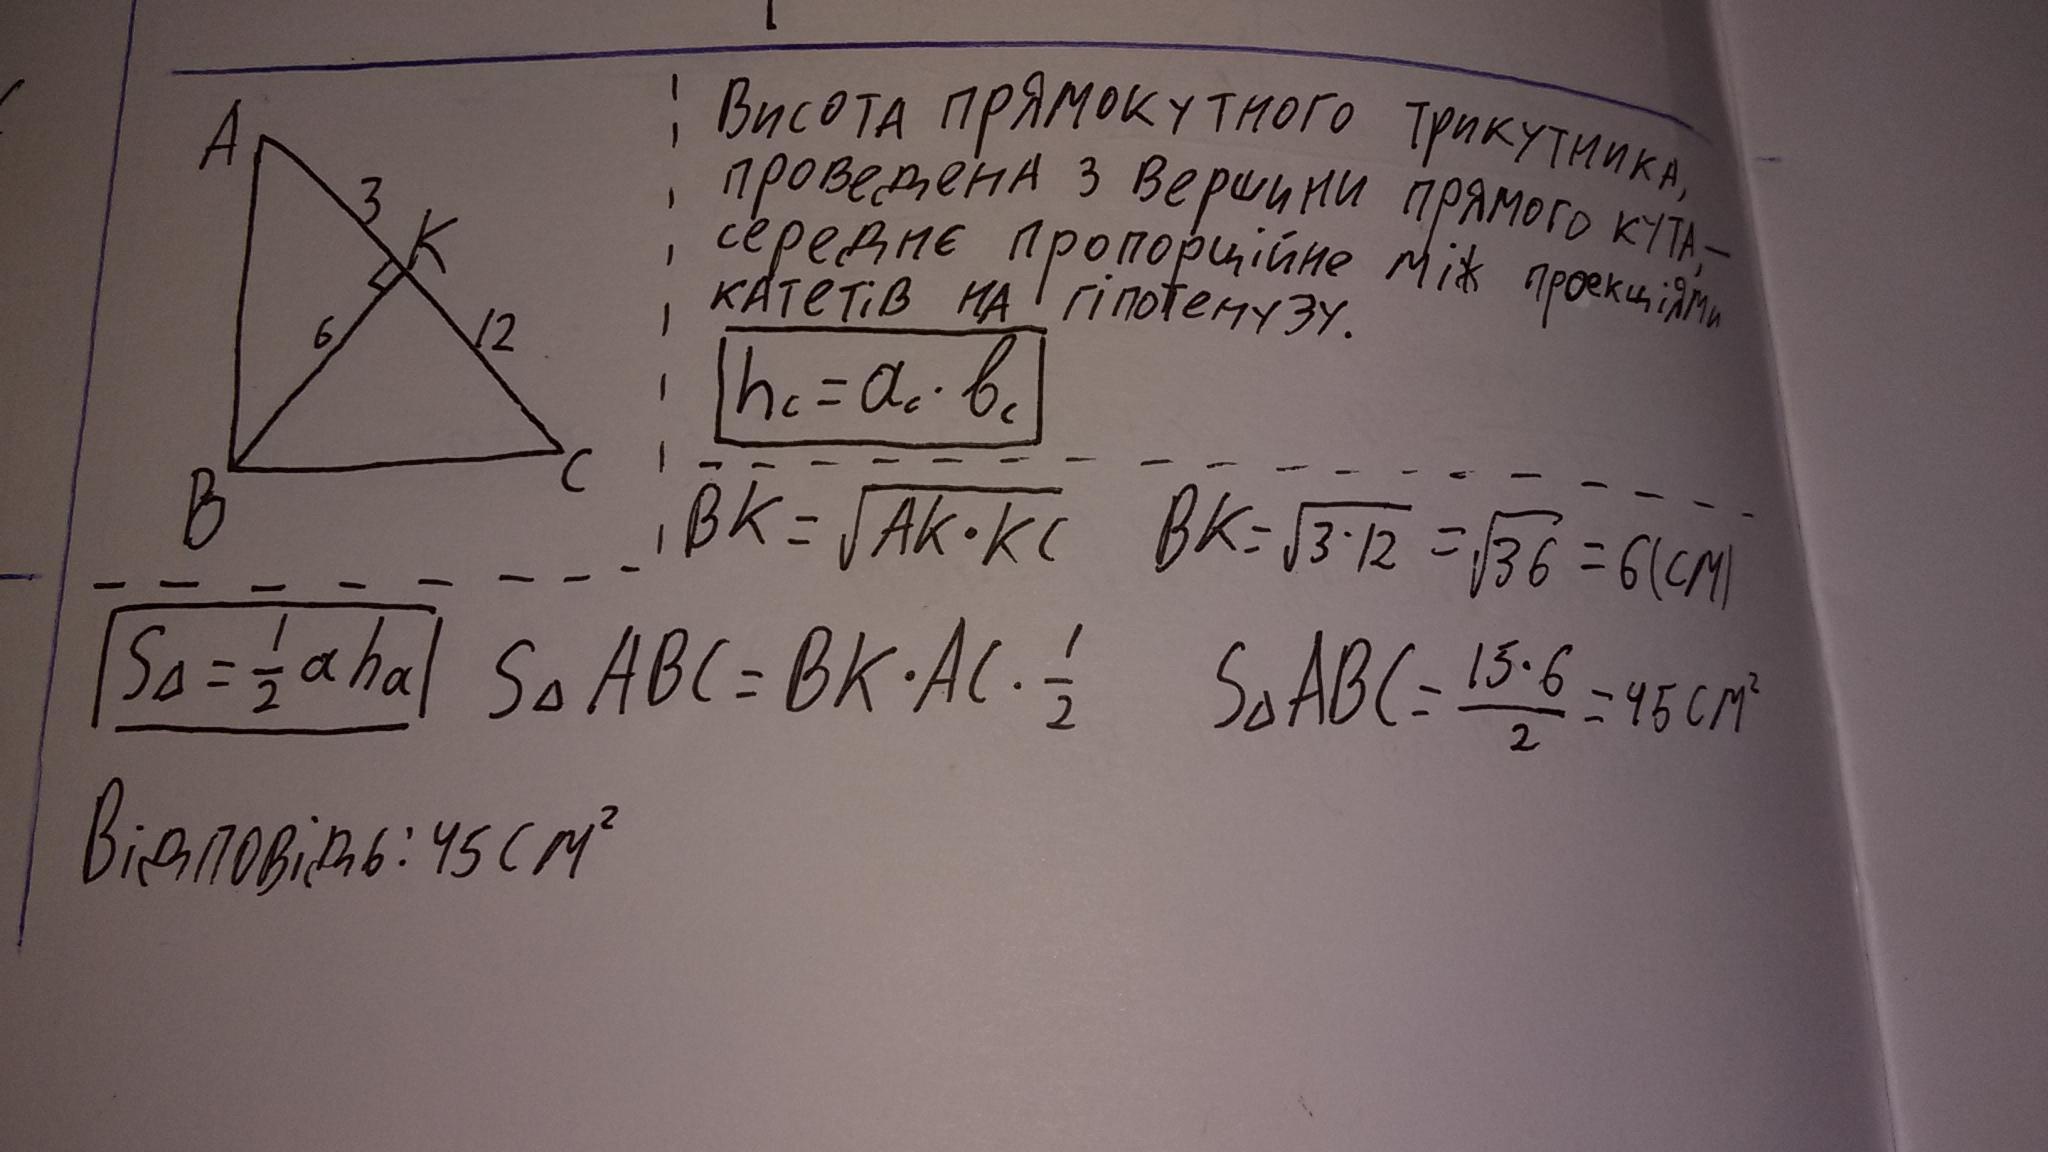 A
3
K
6
12
B
C
Висота прямокутного трикутника,
проведена з вершини прямого кута,–
середнє пропорційне між проекціями
катетів на гіпотенузу.
h_c = a_c · b_c
BK = √AK·KC BK = √3·12 = √36 = 6(см)
S△ = 1/2 a h_a S△ABC = BK·AC·1/2 S△ABC = 15·6/2 = 45см²
Відповідь: 45см²